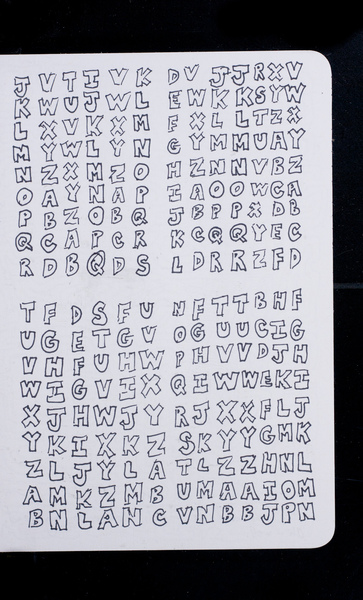 J V T I V K D V J J R X V
K W U J W L E W K K S Y W
L X V K X M F X L L T Z X
M Y W L Y N G Y M M U A Y
N Z X M Z O H Z N N V B Z
O A Y N A P I A O O W C A
P B Z O B Q J B P P X D B
Q C A P C R K C Q Q Y E C
R D B Q D S L D R R Z F D
T F D S F U N F T T B H F
U G E T G V O G U U C I G
V H F U H W P H V V D J H
W I G V I X Q I W W E K I
X J H W J Y R J X X F L J
Y K I X K Z S K Y Y G M K
Z L J Y L A T L Z Z H N L
A M K Z M B U M A A I O M
B N L A N C V N B B J P N